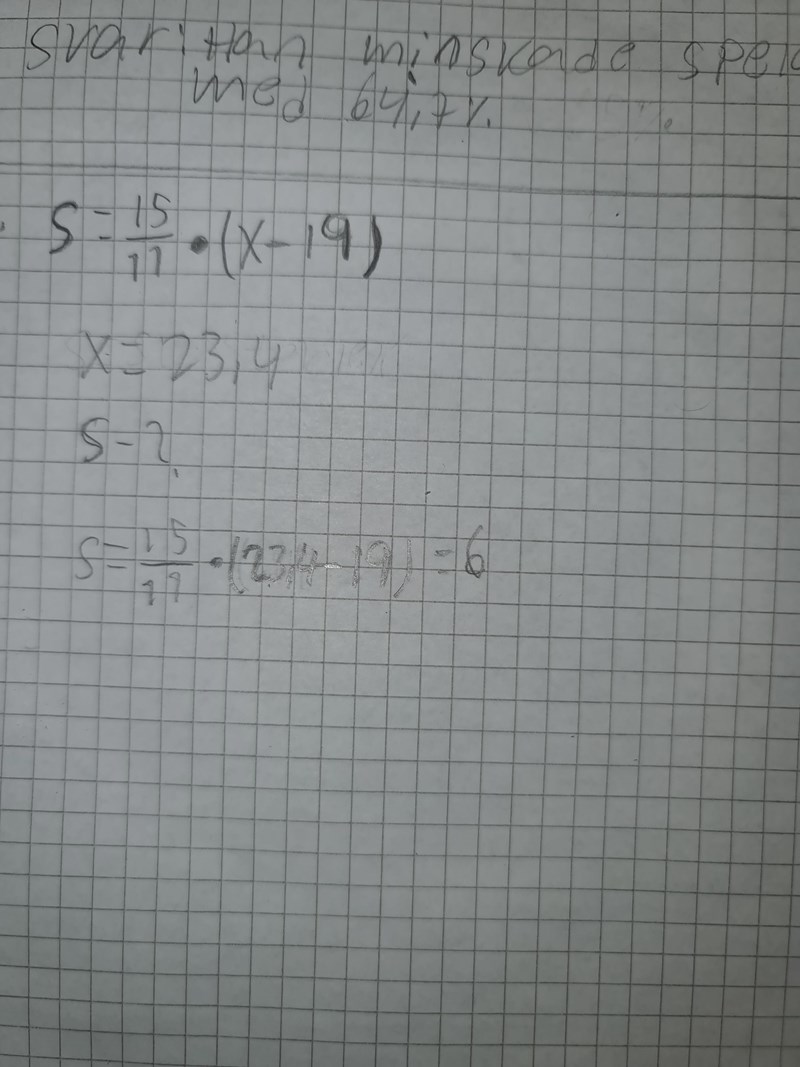 Svar: Han minskade speld
med 64,7%.
S = 15/11 • (x - 19)
x = 23,4
S - ?
S = 15/11 • (23,4 - 19) = 6